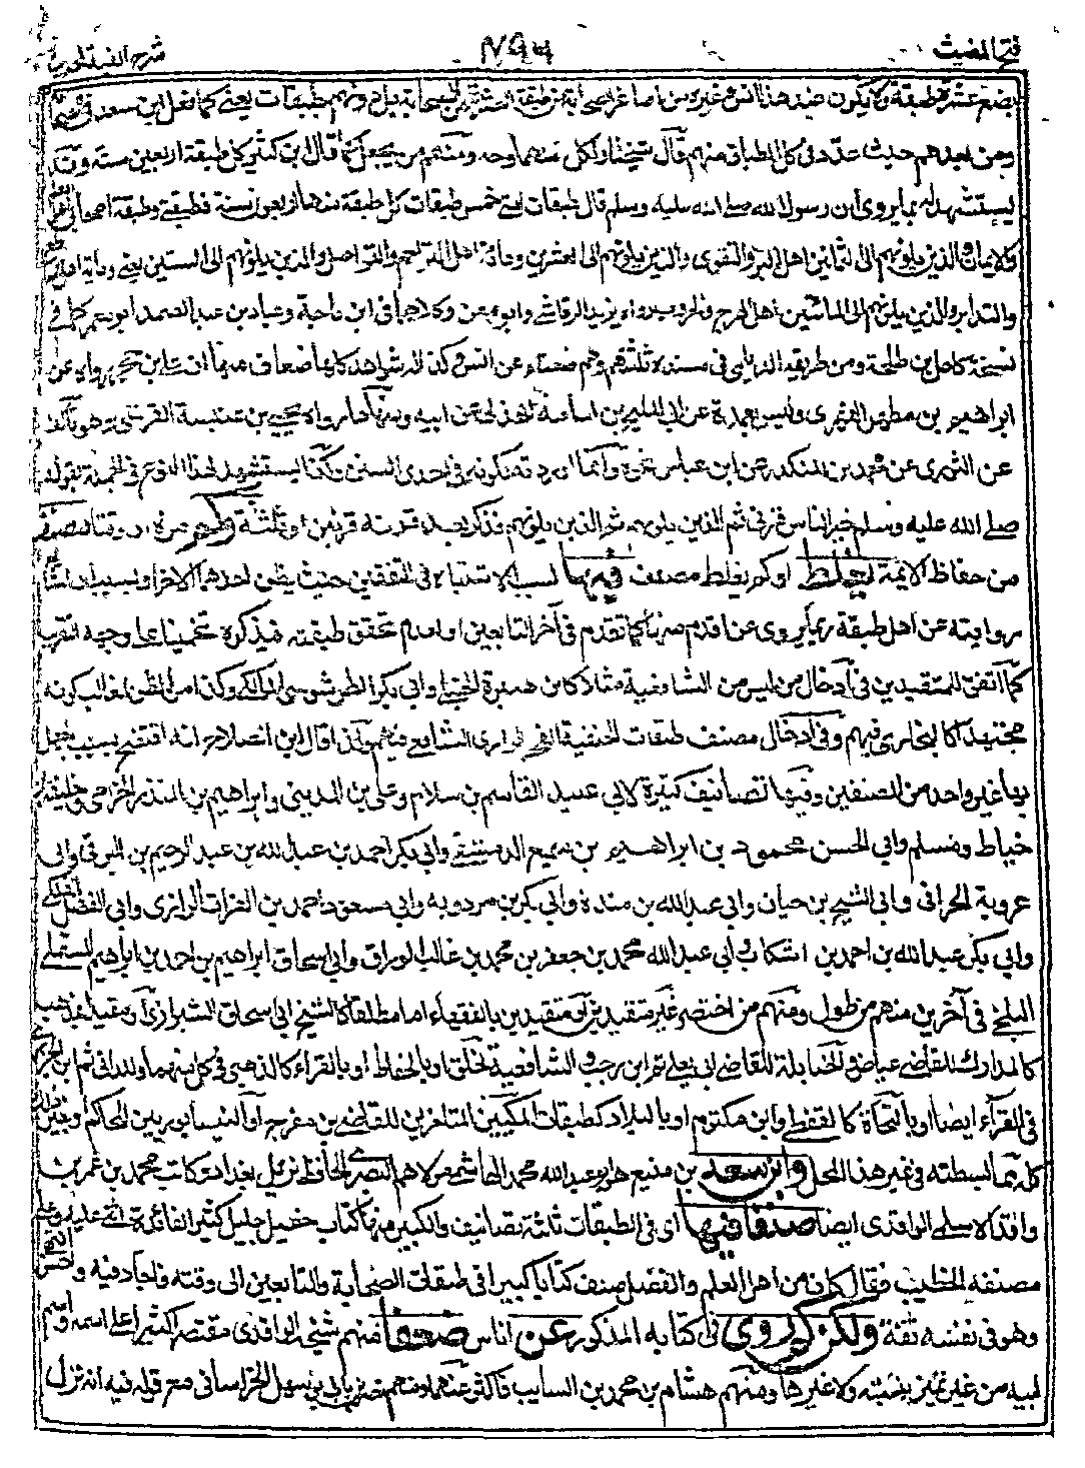 فتح المغيث ٧٩٣ شرح الفية الحديث
بضع عشرة طبقة ولا يكون عند هذا انس وغيره من اصاغر الصحابة من طبقة العشرة من الصحابة بل هم طبقات يعني كما فعل ابن سعد في
ومن بعدهم حيث عدد في كل الطباق منهم قال شيخنا ولكل منهما وجه ومنهم من يجعل كما قال ابن كثير كل طبقة اربعين سنة وقد
يستشهد له بما يروى ان رسول الله صلى الله عليه وسلم قال طبقات امتي خمس طبقات كل طبقة منها اربعون سنة فطبقتي وطبقة اصحابي
والايمان والذين يلونهم الى الثمانين اهل البر والتقوى والذين يلونهم الى العشرين ومائة اهل التراحم والتواصل والذين يلونهم الى الستين يعني ومائة اهل
والتدابر والذين يلونهم الى المائتين اهل الهرج رواه يزيد الرقاشي وابو معن وكلاهما في ابن ماجة وعباد بن عبد الصمد ابو معمر كما في
نسخة كامل بن طلحة ومن طريقه الديلمي في مسنده ثلثتهم وهم ضعفاء عن انس وكذا له شواهد كلها ضعاف منها ان علي بن حجر رواه عن
ابراهيم بن مطهر الفهري وليس بعمدة عن ابي المليح بن اسامة الهذلي عن ابيه ومنها ما رواه يحيى بن عنبسة القرشي وهو تالف
عن الثوري عن محمد بن المنكدر عن ابن عباس نحوه وانما اوردته لكونه في احدى السنن وكذا يستشهد لهذا النوع في الجملة بقوله
صلى الله عليه وسلم خير الناس قرني ثم الذين يلونهم ثم الذين يلونهم فذكر بعد قرنه قرنين او ثلثة وكم مرة
من حفاظ الايمة يغلط او لم يغلط مصنف فيها بسبب الاشتباه في المتفقين حيث يظن احدهما الاخر او بسبب ان الشائع
روايته عن اهل طبقة ربما يروى عن اقدم منها كما تقدم في آخر التابعين او لعدم تحقق طبقته فيذكره تخمينا على وجه التقريب
كما اتفق للمتقيدين في ادخال من ليس من الشافعية مثلا كابن هبيرة الحنبلي وابي بكر الطرطوشي المالكي وكذا من الظن الغالب كونه
مجتهدا كالبخاري فيهم وفي ادخال مصنف طبقات الحنفية الشافعي فيهم ولذا قال ابن الصلاح انه افتضح بسبب الجهل
بها غير واحد من المصنفين وفيها تصانيف كثيرة لابي عبيد القاسم بن سلام وعلي بن المديني وابراهيم بن المنذر الحزامي وخليفة بن
خياط ومسلم وابي الحسن محمود بن ابراهيم بن سميع الدمشقي وابي بكر احمد بن عبد الله بن عبد الرحيم بن البرقي وابي
عروبة الحراني وابي الشيخ بن حيان وابي عبد الله بن مندة وابي بكر بن مردويه وابي مسعود احمد بن الفرات الرازي وابي الفضل الفلكي
وابي بكر عبد الله بن احمد بن ابي عبد الله محمد بن جعفر بن محمد بن غالب الوراق وابي اسحاق ابراهيم بن احمد بن ابراهيم المستملي
البلخي في آخرين منهم من طول ومنهم من اختصر غير متقيدين او متقيدين بالفقهاء اما مطلقا كالشيخ ابي اسحاق الشيرازي او مقيدا بمذهب
كالمدارك للقاضي عياض والحنابلة للقاضي ابي يعلى ثم ابن رجب والشافعية لخلق او بالحفاظ او بالقراء كالذهبي في كل منهما وللداني ثم ابن الجزري
في القراء ايضا او بالنحاة كالقفطي وابن مكتوم او بالبلاد كطبقات المكيين المتاخرين للقاضي بن مفرج او النيسابوريين للحاكم
كله مما ابسطته في غير هذا المحل وابن سعد بن منيع هو ابو عبد الله محمد الهاشمي مولاهم البصري الحافظ نزيل بغداد كاتب محمد بن عمر بن
واقد الاسلمي الواقدي ايضا صنفا فيها اي في الطبقات ثلثة تصانيف والكبير منها كتاب حفيل جليل كثير الفائدة
مصنفه الخطيب فقال كان من اهل العلم والفضل صنف كتابا كبيرا في طبقات الصحابة والتابعين الى وقته فاجاد فيه واحسن
وهو في نفسه ثقة ولكن كم روى في كتابه المذكور عن اناس ضعفا منهم شيخه الواقدي مقتصرا كثيرا على اسمه واسم
ابيه من غير تمييز بنسبته ولا غيرها ومنهم هشام بن محمد بن السايب فاكثر عنهما ومنهم نصر بن ابي سهل الخراساني مع قوله فيه انه نزل